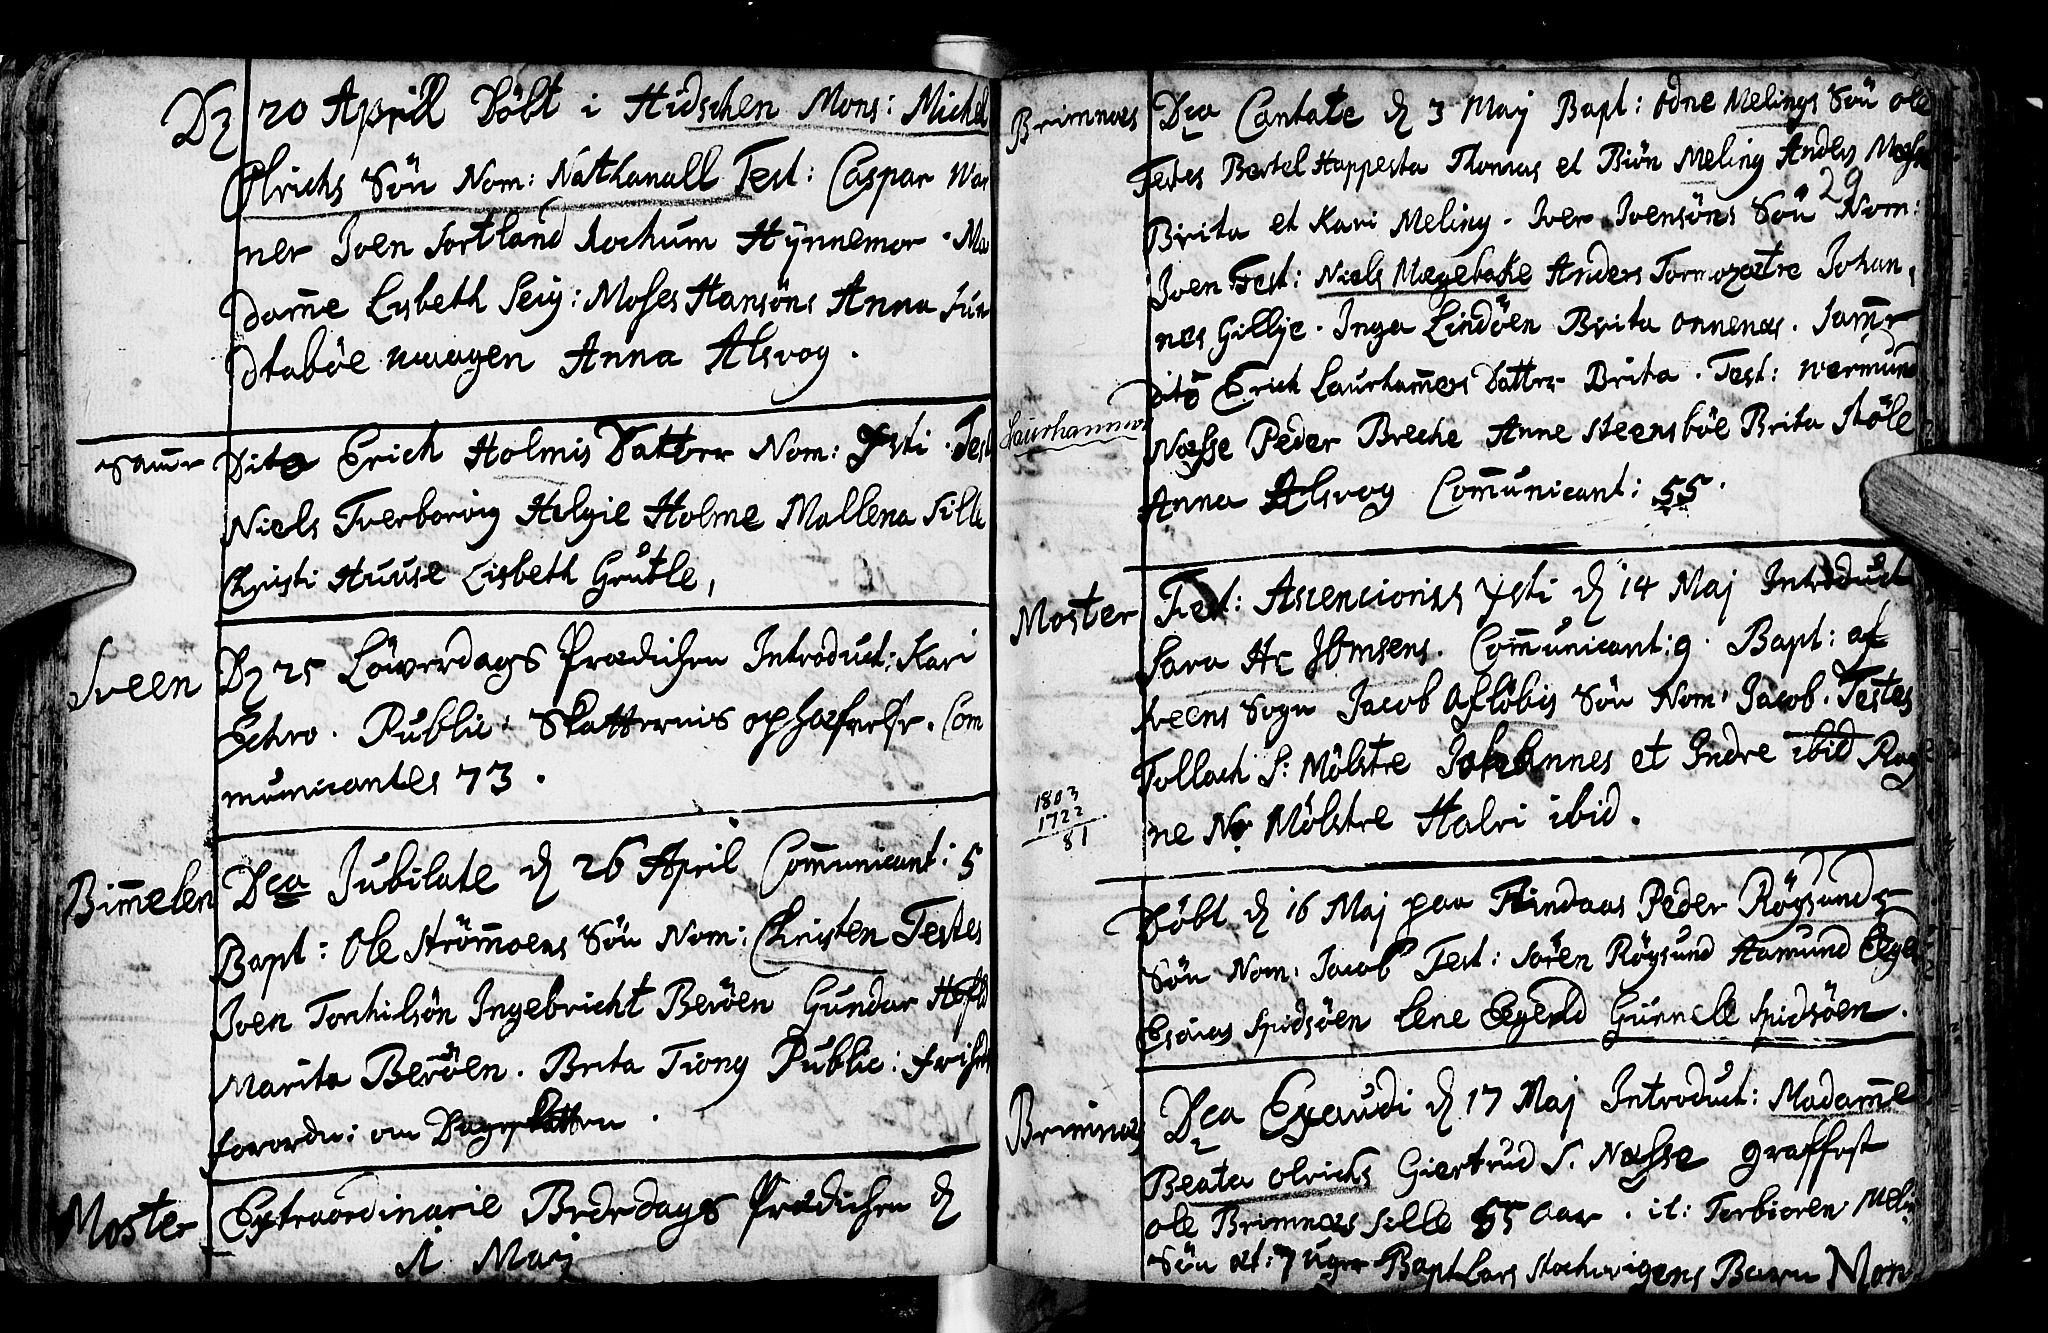 Dꝫ 20 Aprill Döbt i Hidschen Mons: Michel
Olrichs Sön Nom: Nathanall Test: Caspar War
ner Iven Sortland Jochum Hÿnnemor. Ma
dam̃e Lisbeth Seig: Moses Hansöns Anna Sun
dtaböe waagen Anna Alsvog.
Sam̃r Dito Erich Holmis Datter Nom: Ÿsti. Test
Niels Tverborvig Helgie Holme Mallena Sille
Christi Huuse Lisbeth Grütle,
Sveen Dꝫ 25 Löwerdags Prædichen Introduct: Kari
Echro. Public: Skatternis ophæfvelse. Com
municantes 73.
Bim̃elen Dca Jubilate d 26 April Communicant: 5
Bapt: Ole Ström̃oens Sön Nom: Christen Testes
Iven Torchilsön Ingebricht Beröen Gundar
Marita Beröen. Brita Tiong Public:
forordn: om Dagskatten.
Moster Extraordinarie Bededags Prædichen d
1. Maj
Brimnæs Dca Cantate d 3 Maj Bapt: Odne Melings Sön Ole
Testes Bertel Happesta Thomas et Biön Meling Anders
29
Brita et Kari Meling. Iver Ivensöns Sön Nom:
Iven Test: Niels Mægebake Anders Tormozætre Johan,
nes Gillje. Inga Lindöen Brita Onnenæs. Sam̃r
Laurhammer dito Erich Laurham̃ers Datter Brita. Test: Wermund
Næsse Peder Breche Anne Steensböe Brita Stöle
Anna Alsvog Com̃unicant: 55.
Moster Fest: Ascencionis Xsti d 14 Maj Introduct
Sara Hr Ibmsens. Com̃unicant: 9. Bapt: af
Sveens Sogn Jacob Aflöbis Sön Nom: Jacob. Testes
Tollach S: Mölstre Johannes et Indre ibid Rag
1803
1722
81
ne N: Mölstre Halvi ibid.
Döbt d 16 Maj paa Findaas Peder Rögsunds
Sön Nom: Jacob Test: Sören Rögsund Aamund Egge
Esaias Spidsöen Lene Egeld Gunnele Spidsöen.
Brimnæs Dca Exaudi d 17 Maj Introduct: Madam̃e
Beata Olrichs Giertrud S. Næsse graffest
Ole Brimnæs Sille 55 Aar. it: Torbioren Melings
Sön æt: 7 Uger Bapt Lars Stochevigens Barn Mons